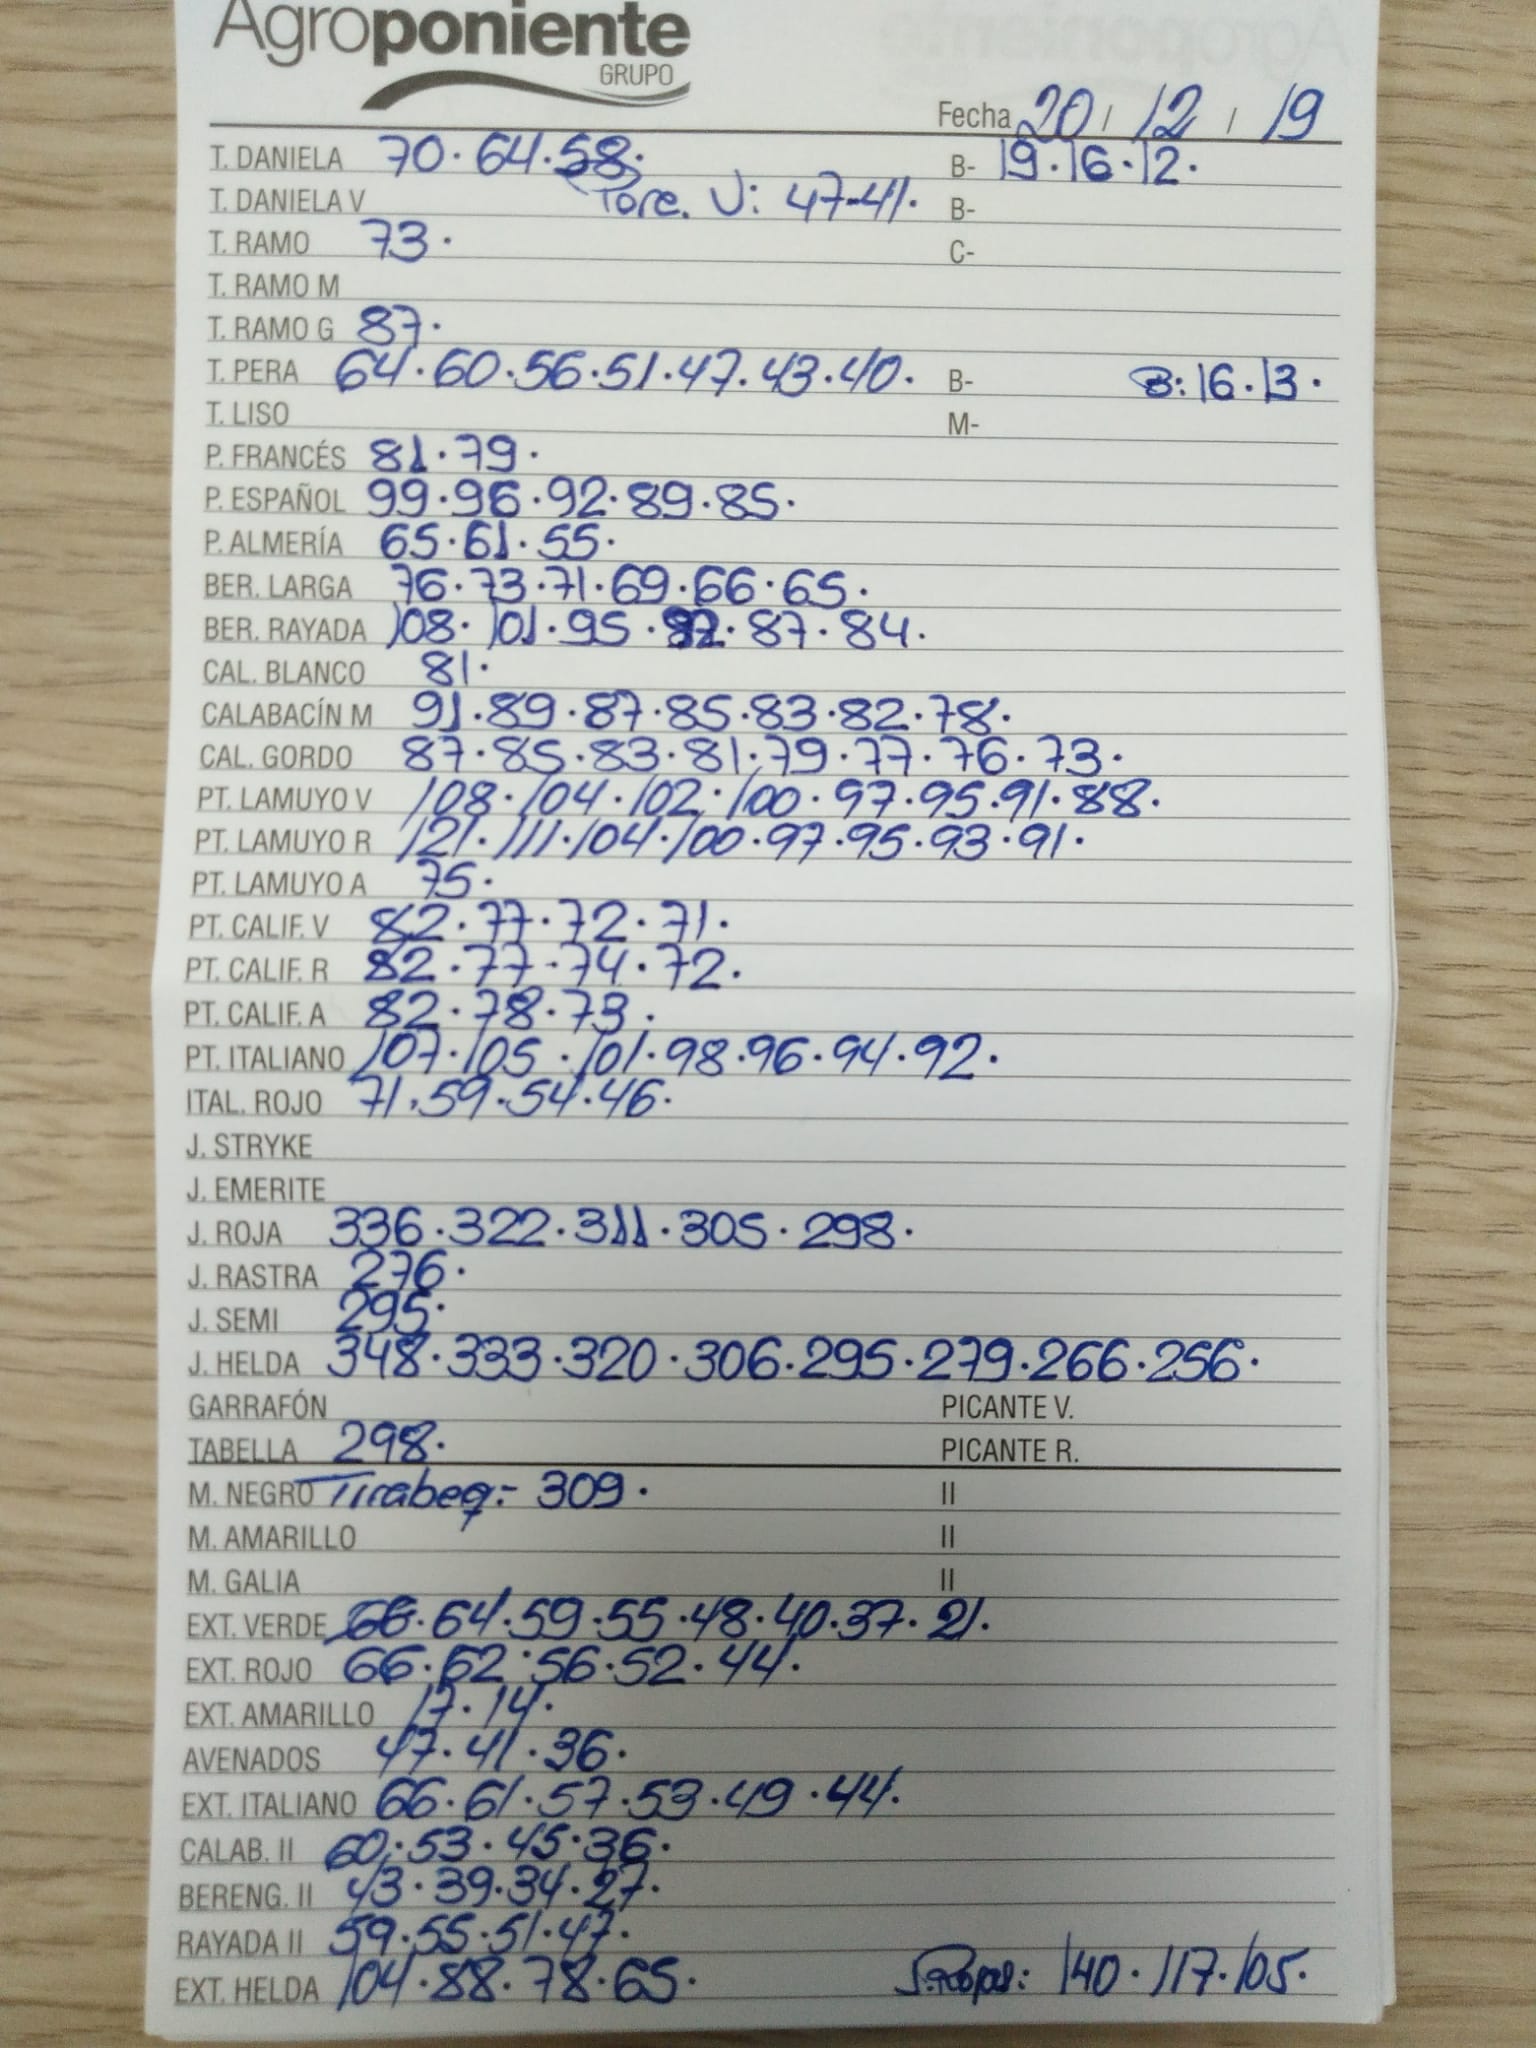 Agroponiente
GRUPO
Fecha 20 / 12 / 19
T. DANIELA 70·64·58· B- 19·16·12·
T. DANIELA V Torc. V: 47-41· B-
T. RAMO 73· C-
T. RAMO M
T. RAMO G 87·
T. PERA 64·60·56·51·47·43·40· B- B: 16·13·
T. LISO M-
P. FRANCÉS 81·79·
P. ESPAÑOL 99·96·92·89·85·
P. ALMERÍA 65·61·55·
BER. LARGA 76·73·71·69·66·65·
BER. RAYADA 108·101·95·92·87·84·
CAL. BLANCO 81·
CALABACÍN M 91·89·87·85·83·82·78·
CAL. GORDO 87·85·83·81·79·77·76·73·
PT. LAMUYO V 108·104·102·100·97·95·91·88·
PT. LAMUYO R 121·111·104·100·97·95·93·91·
PT. LAMUYO A 75·
PT. CALIF. V 82·77·72·71·
PT. CALIF. R 82·77·74·72·
PT. CALIF. A 82·78·73·
PT. ITALIANO 107·105·101·98·96·94·92·
ITAL. ROJO 71·59·54·46·
J. STRYKE
J. EMERITE
J. ROJA 336·322·311·305·298·
J. RASTRA 276·
J. SEMI 295·
J. HELDA 348·333·320·306·295·279·266·256·
GARRAFÓN PICANTE V.
TABELLA 298· PICANTE R.
M. NEGRO Tirabeq:- 309· II
M. AMARILLO II
M. GALIA II
EXT. VERDE 66·64·59·55·48·40·37·21·
EXT. ROJO 66·62·56·52·44·
EXT. AMARILLO 17·14·
AVENADOS 47·41·36·
EXT. ITALIANO 66·61·57·53·49·44·
CALAB. II 60·53·45·36·
BERENG. II 43·39·34·27·
RAYADA II 59·55·51·47·
EXT. HELDA 104·88·78·65· 140·117·105·